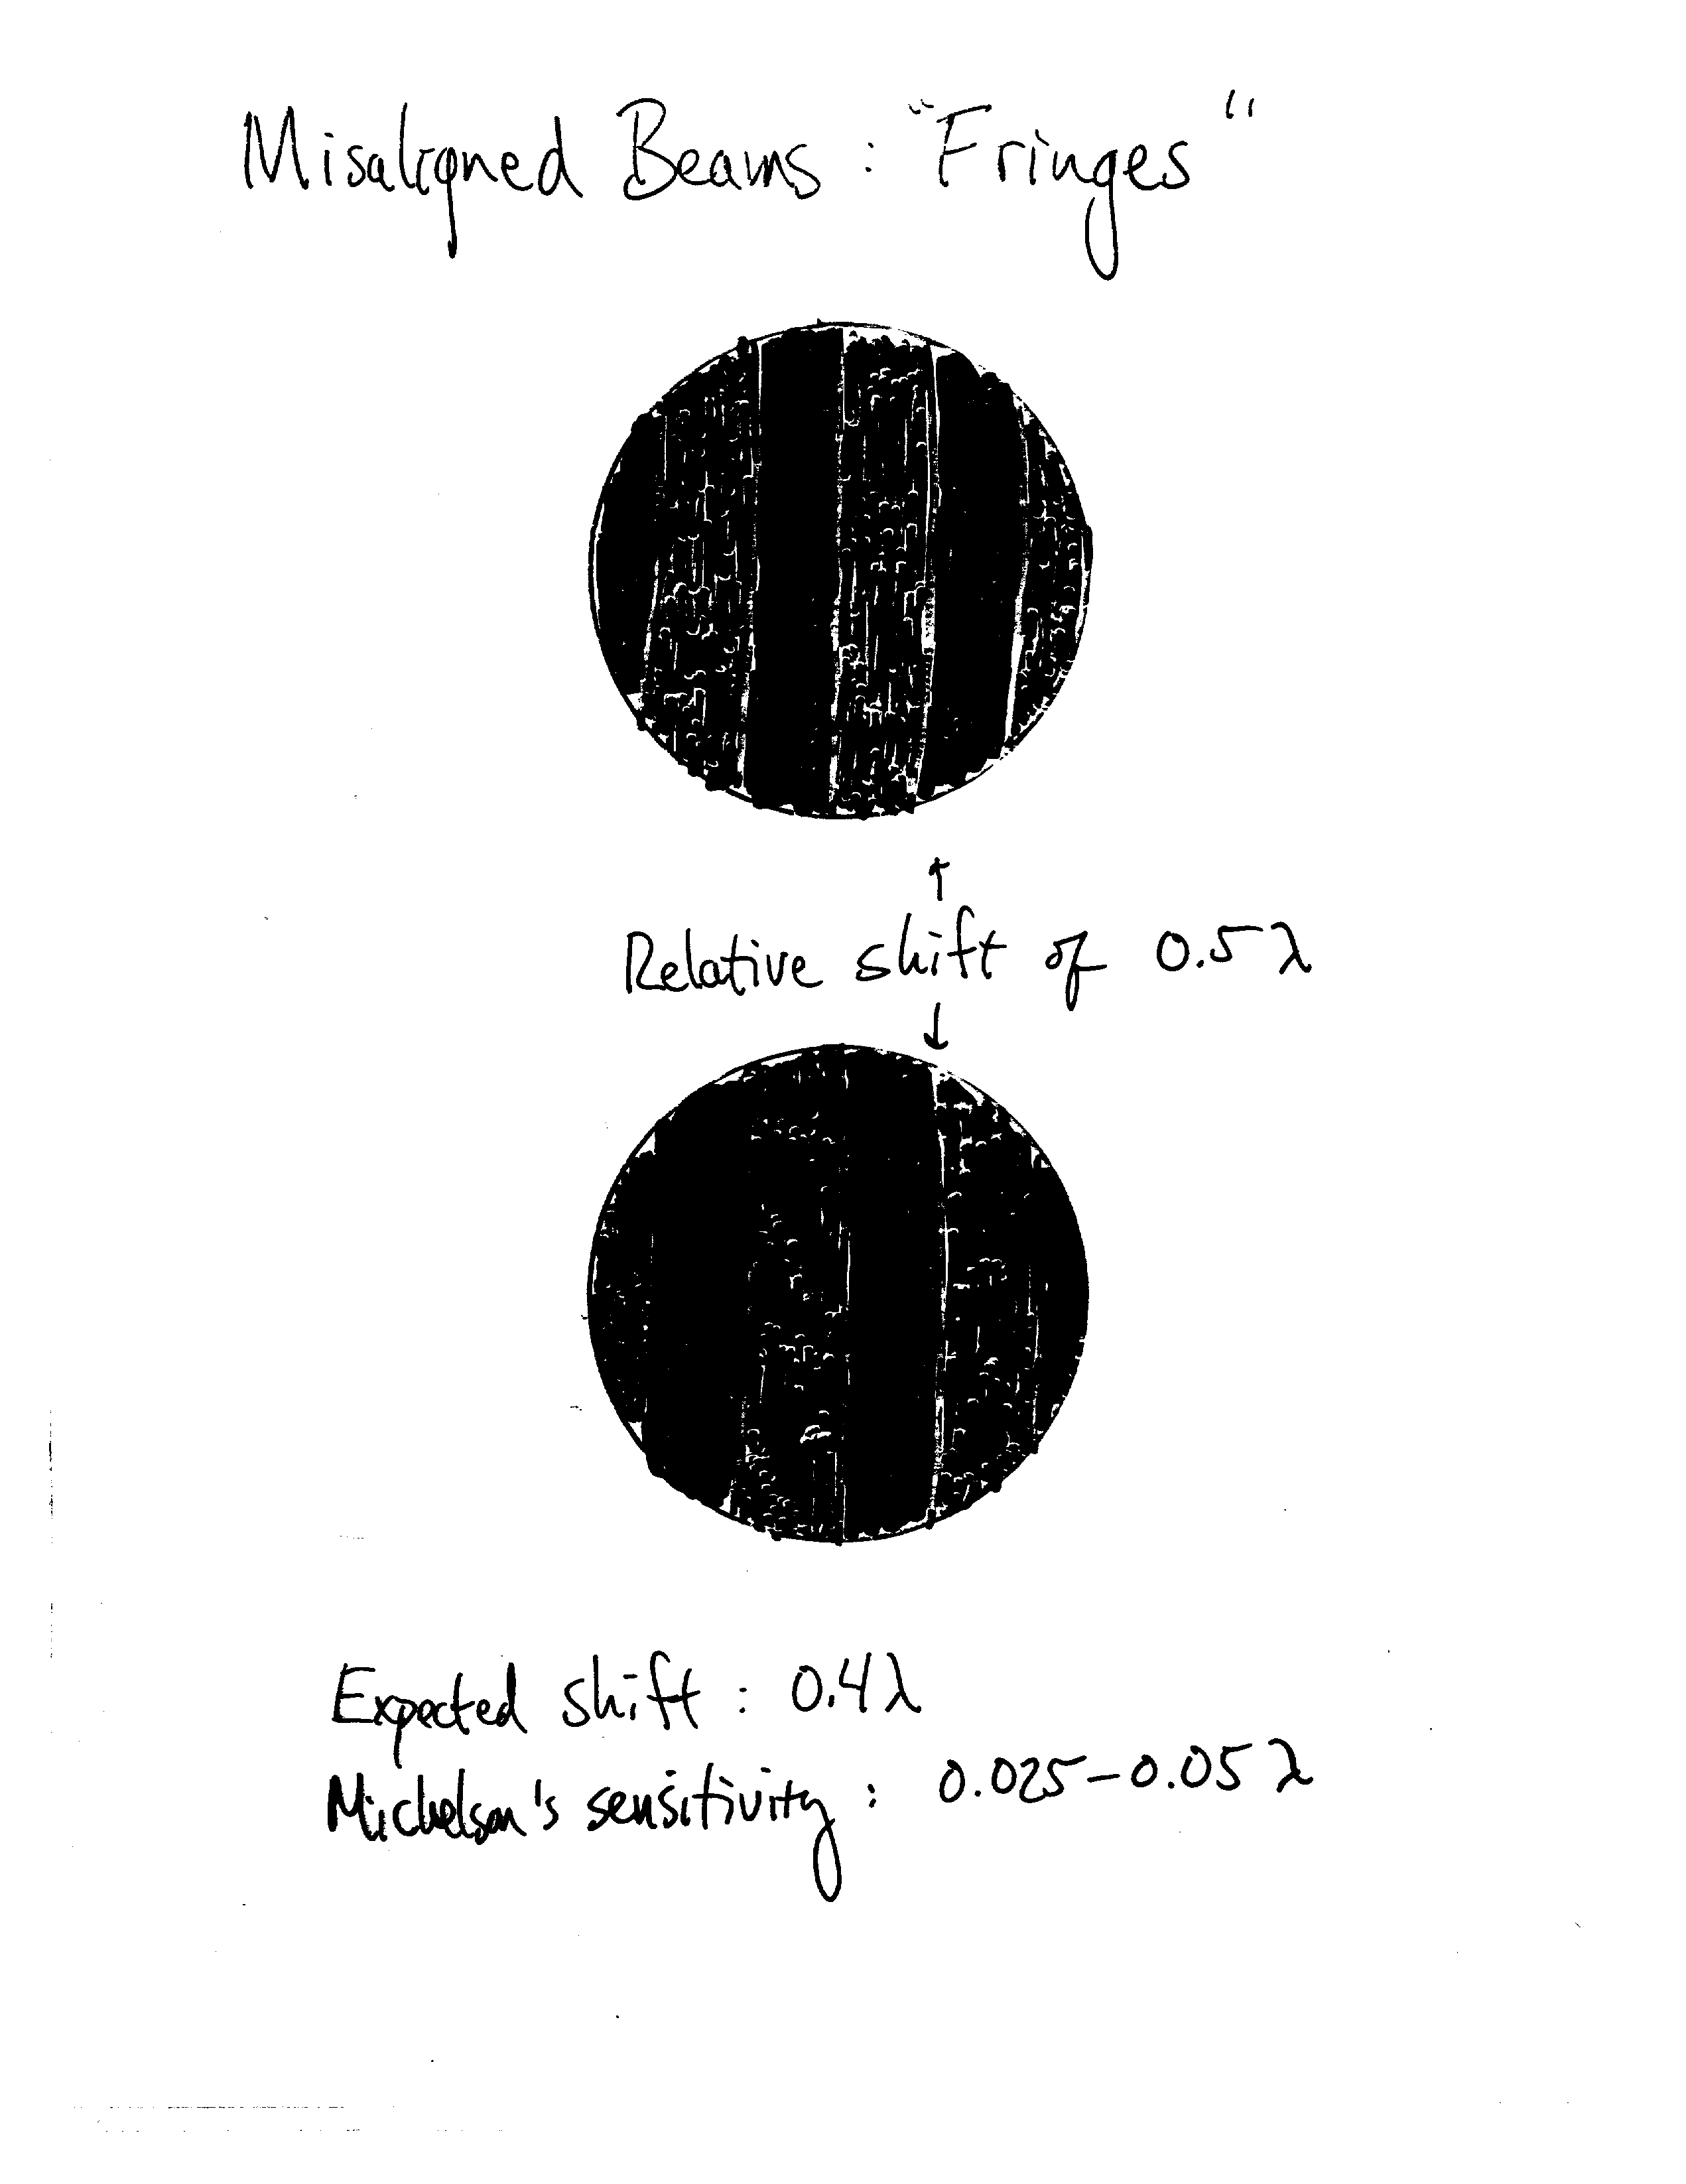 Misaligned Beams : "Fringes"
↑
Relative shift of 0.5 λ
↓
Expected shift : 0.4 λ
Michelson's sensitivity : 0.025-0.05 λ